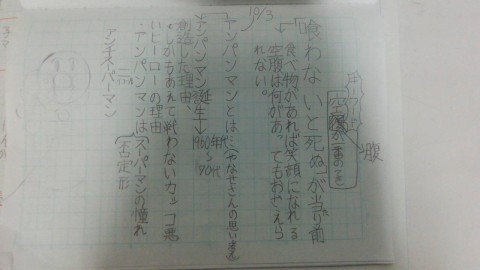 10/3
喰わないと死ぬが当り前
食べ物があれば笑顔になれる
空腹は何があってもおさえら
れない。
腹
アンパンマンとは…(やなせさんの思い
アンパンマン誕生→1960年代
〜
70代
創造した理由、
しかもあえて戦わないカッコ悪
いヒーローの理由
・アンパンマンは(スーパーマンの憧れ
否定形
アンチスーパーマン